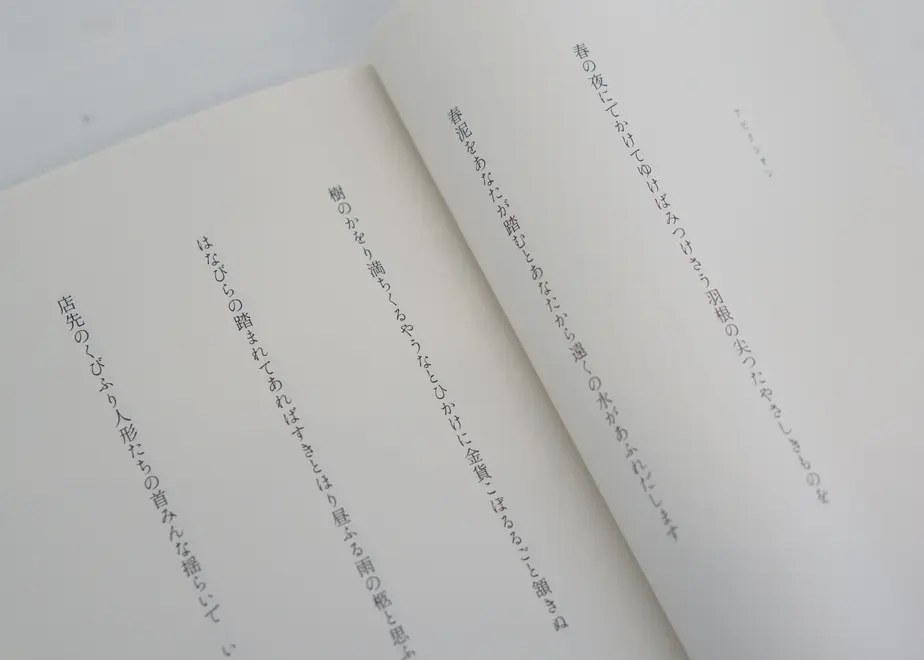 春の夜にてかけてゆけばみつけさう羽根の尖つたやさしきものを
春泥をあなたが踏むとあなたから遠くの水があふれだします
樹のかをり満ちくるやうなとひかけに金貨こぼるるごと頷きぬ
はなびらの踏まれてあればすきとほり昼ふる雨の柩と思ふ
店先のくびふり人形たちの首みんな揺らいて い